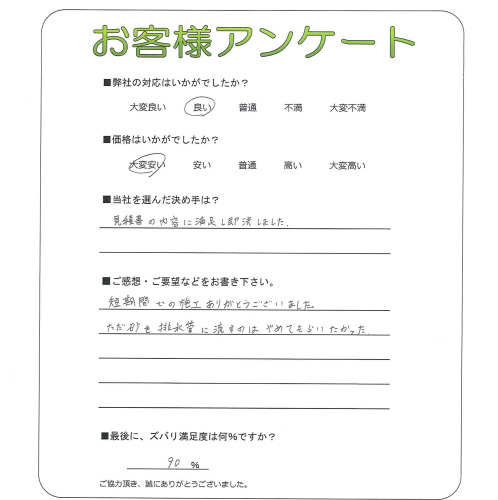 お客様アンケート
■弊社の対応はいかがでしたか？
大変良い 良い 普通 不満 大変不満
■価格はいかがでしたか？
大変安い 安い 普通 高い 大変高い
■当社を選んだ決め手は？
見積書の内容に満足し即決しました.
■ご感想・ご要望などをお書き下さい。
短期間での施工ありがとうございました。
ただ砂を排水管に流すのはやめてもらいたかった.
■最後に、ズバリ満足度は何%ですか？
90 %
ご協力頂き、誠にありがとうございました。